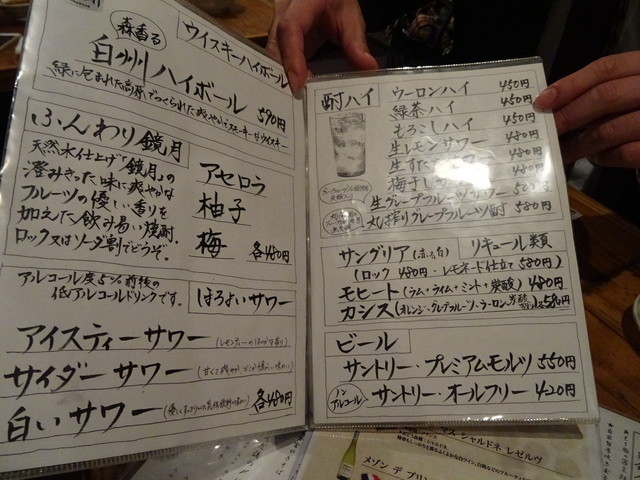 ウイスキーハイボール
森香る
白州ハイボール 590円
ふんわり鏡月
天然水仕上げ「鏡月」の
澄みきった味に爽やかな
フルーツの優しい香りを
加えた飲み易い焼酎。
ロックスはソーダ割でどうぞ。
アセロラ
柚子
梅 各480円
アルコール度5%前後の
低アルコールドリンクです。
ほろよいサワー
アイスティーサワー
サイダーサワー
白いサワー 各480円
酎ハイ
ウーロンハイ 450円
緑茶ハイ 450円
もろこしハイ 480円
生レモンサワー 480円
生すだちサワー 480円
梅干しサワー 480円
生グレープフルーツサワー
丸搾りグレープフルーツ酎 580円
サングリア(赤or白)
リキュール類
(ロック 480円・レモネード仕立て 580円)
モヒート(ラム+ライム+ミント+炭酸) 480円
カシス(オレンジ・グレープフルーツ・ウーロン
ビール
サントリー・プレミアムモルツ 550円
ノンアルコール サントリー・オールフリー 420円
シャルドネ レゼルヴ
メゾン デ